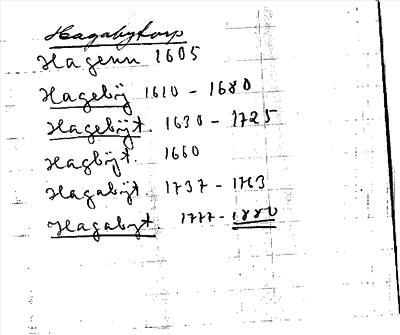 Hagabytorp
Hagenn 1605
Hagebÿ 1610 - 1680
Hagebÿt. 1630 - 1725
Hagbÿt. 1660
Hagabÿt 1737 - 1763
Hagabyt. 1777 - 1880